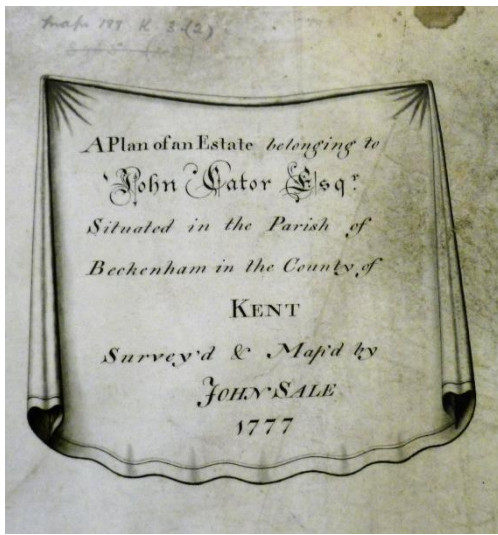 Maps 188 K. 3.(2)
A Plan of an Estate belonging to
John Cator Esqr.
Situated in the Parish of
Beckenham in the County of
KENT
Survey'd & Map'd by
JOHN SALE
1777